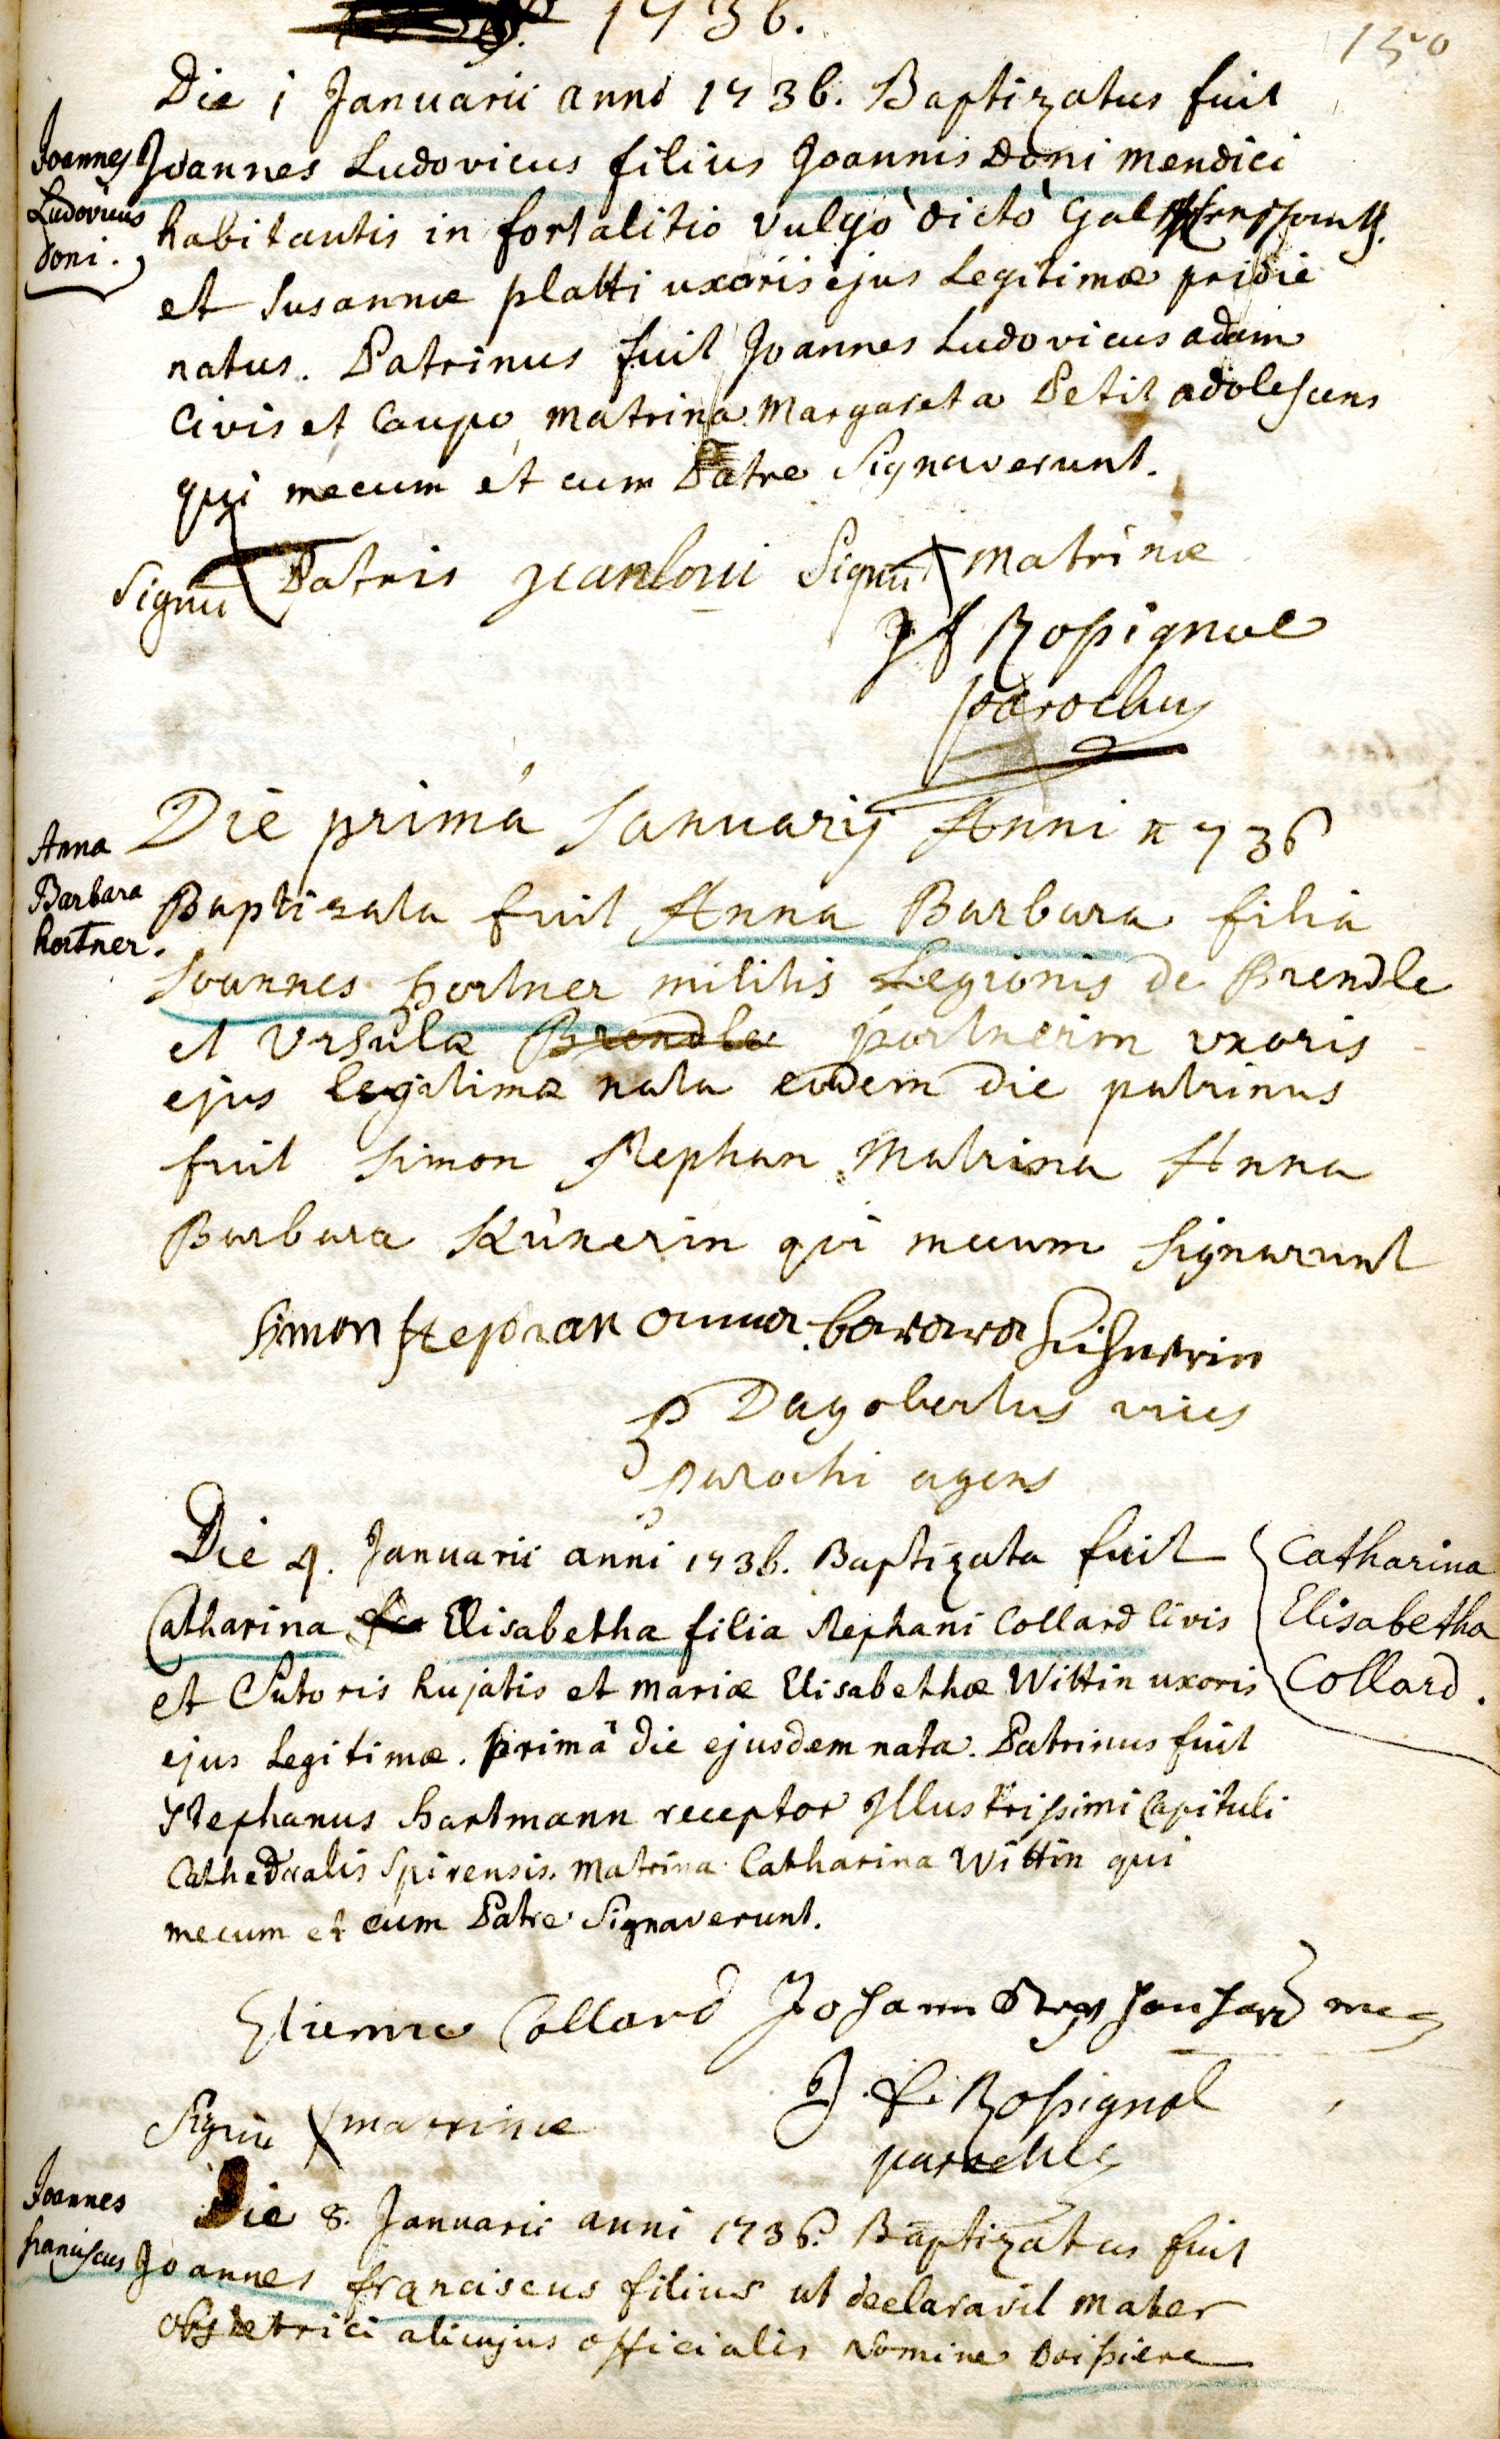 1736.
150
Die 1 Januarii anno 1736. Baptizatus fuit
Joannes Ludovicus filius Joannis Doni mendici
habitantis in fortalitio vulgo dicto
et Susannæ platti uxoris ejus Legitimæ pridie
natus. Patrinus fuit Joannes Ludovicus adam
Civis et Caupo, matrina Margareta Petit adolescens
qui mecum et cum Patre Signaverunt.
Joannes
Ludovicus
Doni.
Signu Patris jean doni Signu matrinæ
J f Rossignol
parochus
Die primâ Januarij Anni 1736
Baptizata fuit Anna Barbara filia
Joannes hortner militis Legionis de Brendle
et Ursulæ Brendle portnerin uxoris
ejus legitimæ nata eodem die patrinus
fuit Simon Stephan Matrina Anna
Barbara Künerin qui mecum signarunt
Anna
Barbara
hortner.
Simon stephan anna barbara
P Dagobertus vices
parochi agens
Die 4. Januarii anni 1736. Baptizata fuit
Catharina Elisabetha filia Stephani Collard Civis
et Sutoris hujatis et mariæ Elisabethæ Wittin uxoris
ejus Legitimæ. primâ die ejusdem nata. Patrinus fuit
Stephanus hartmann receptor Illustrissimi Capituli
Cathedralis Spirensis. matrina Catharina Wittin qui
mecum et cum Patre Signaverunt.
Catharina
Elisabetha
Collard.
Etienne Collard Johann
J. f. Rossignol
Signu matrinæ
parochus
Die 8. Januarii anni 1736. Baptizatus fuit
Joannes franciscus filius ut declaravit mater
obstetrici alicujus officialis nomine
Joannes
franciscus